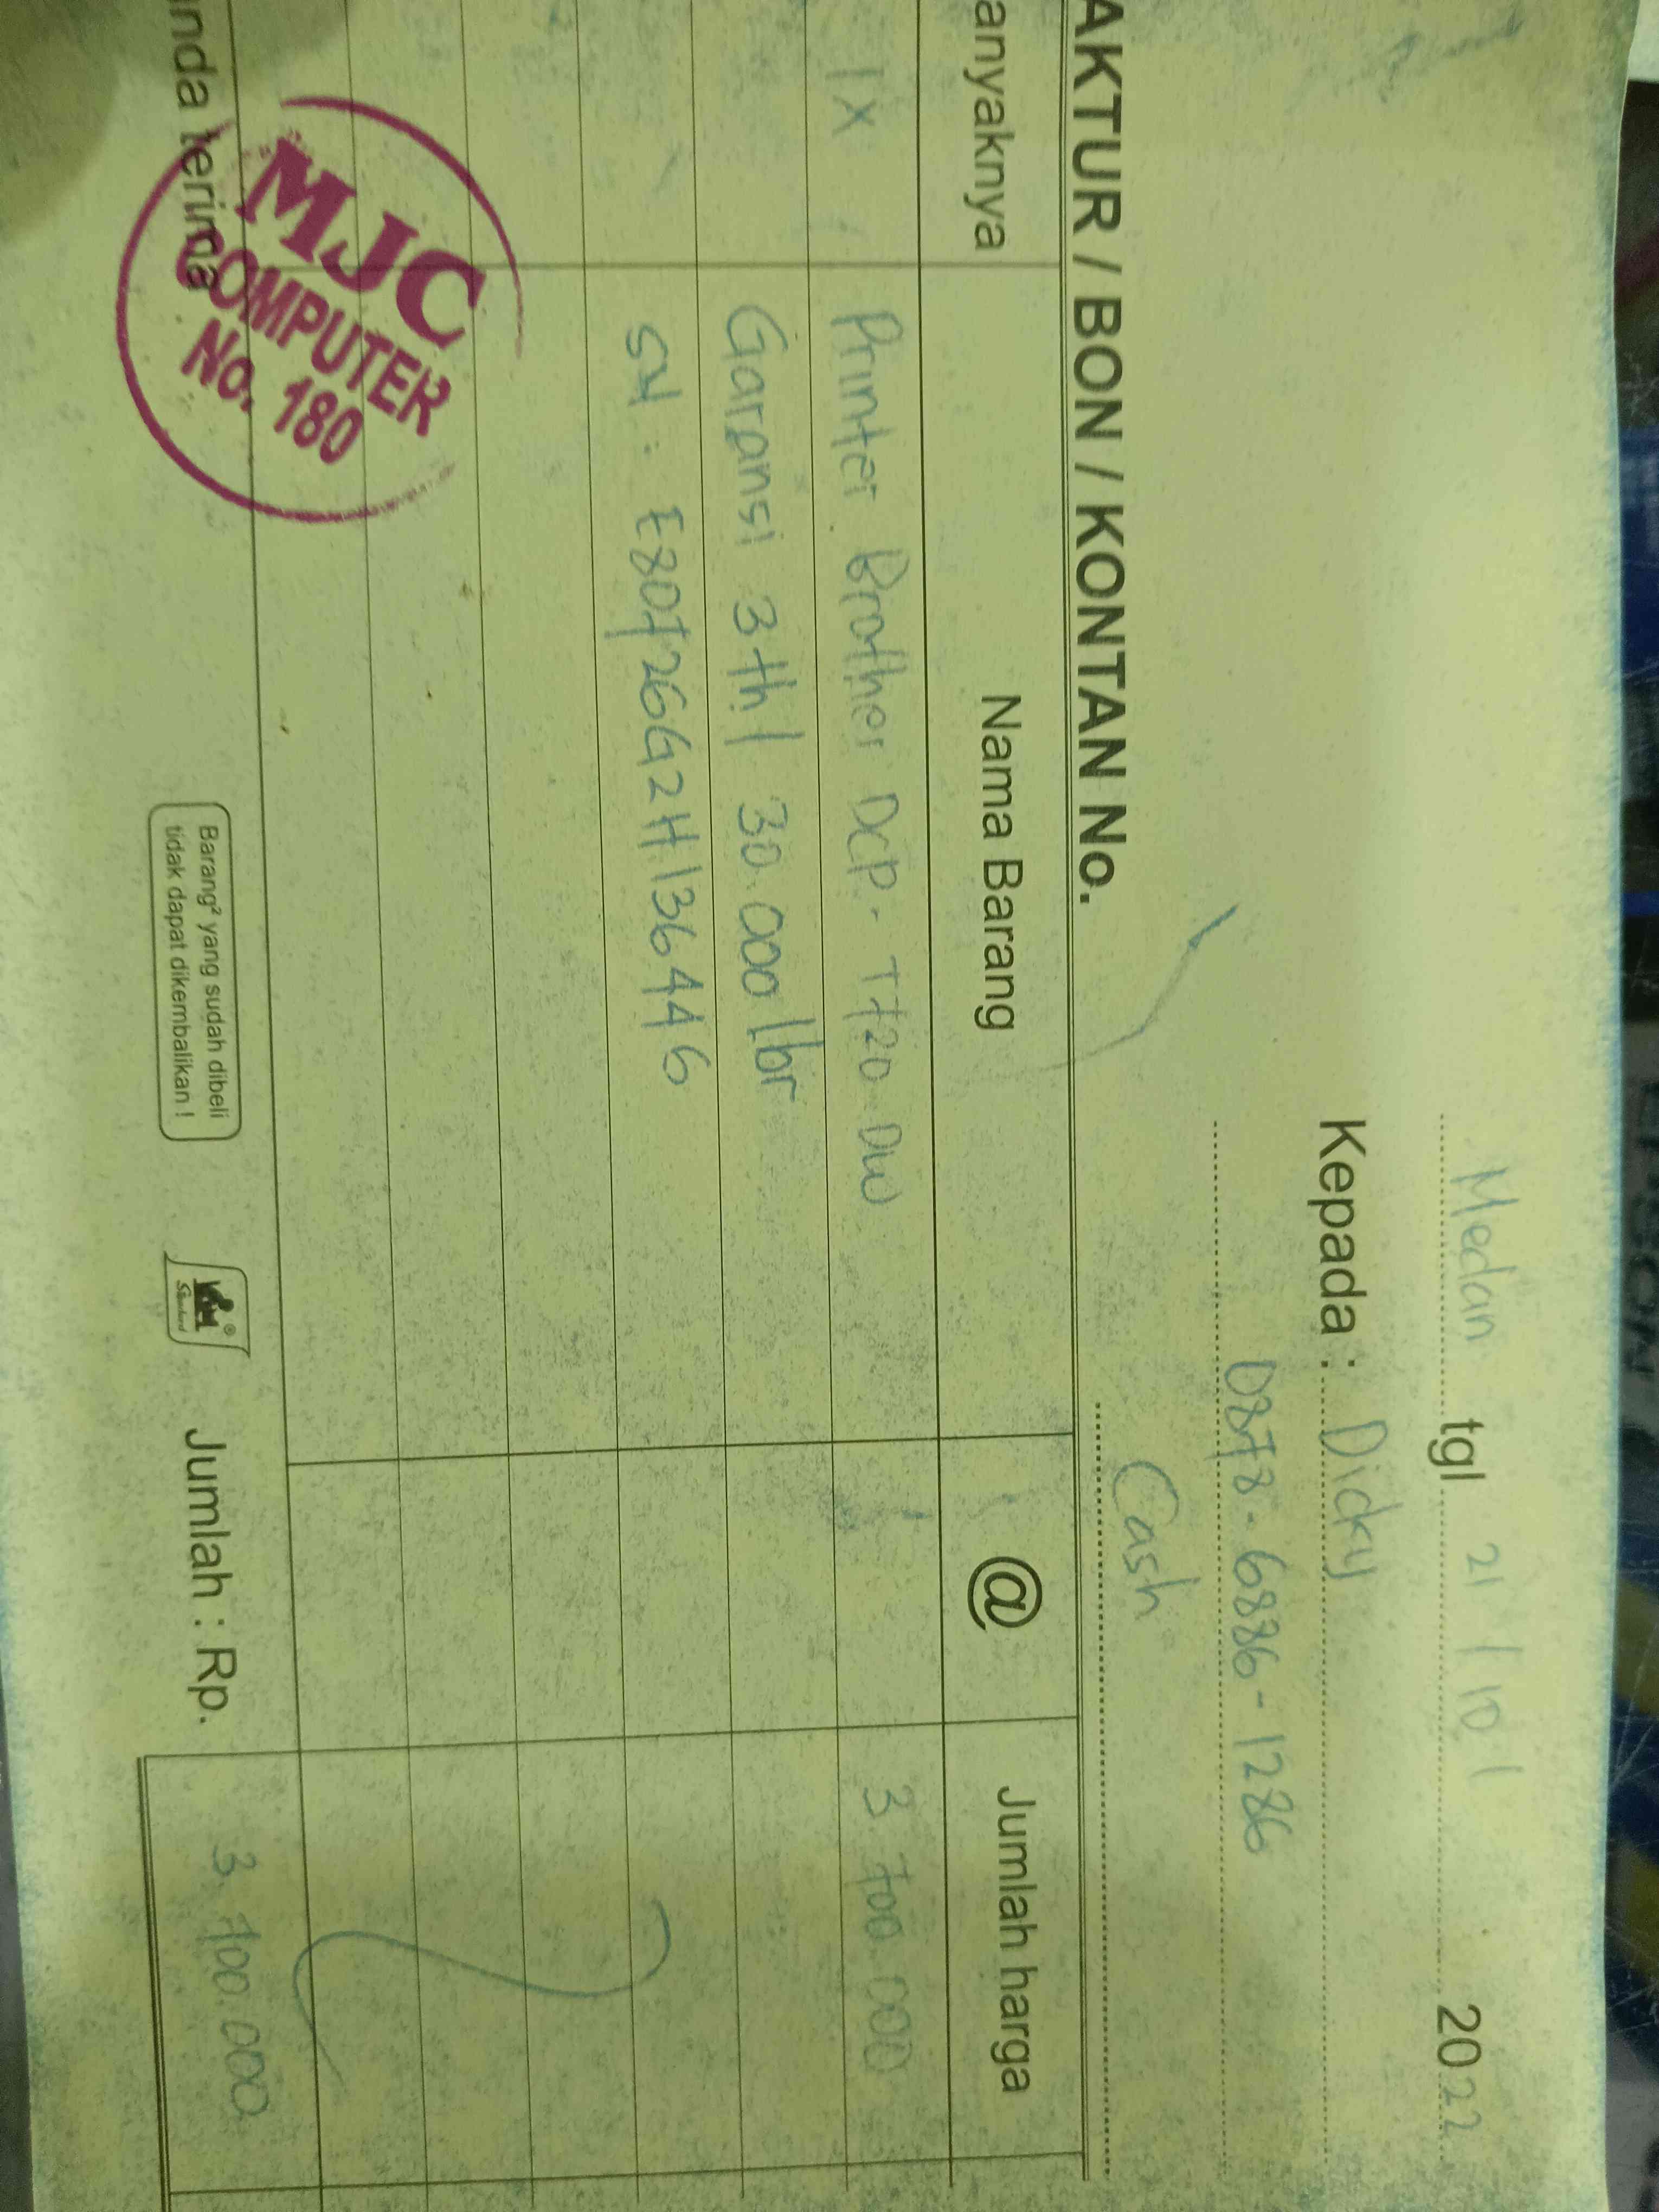 Medan tgl 21/10/ 2022
Kepada : Dicky
0878-6886-1286
Cash
AKTUR / BON / KONTAN No.
anyaknya Nama Barang @ Jumlah harga
1x Printer Brother DCP-T720 DW 3.700.000
Garansi 3th / 30.000 lbr
SN : E80726G2H136446
nda terima
MJC
COMPUTER
No. 180
Barang² yang sudah dibeli
tidak dapat dikembalikan !
Jumlah : Rp. 3.700.000